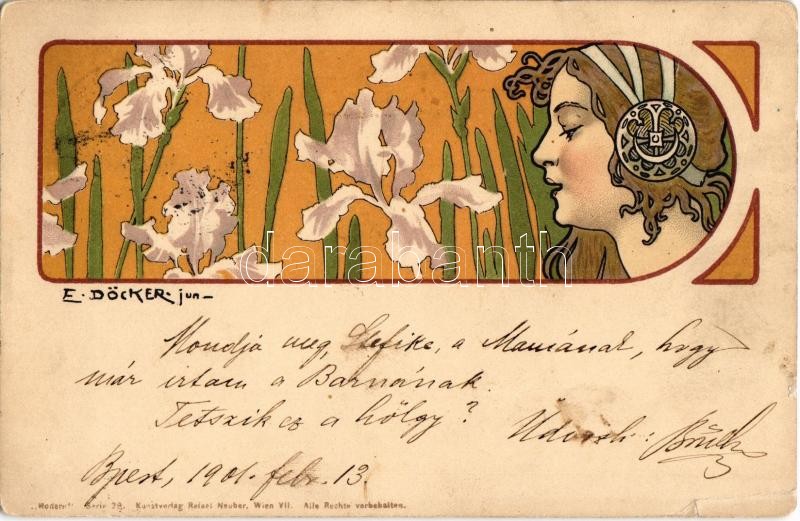 darabanth
E. DÖCKER. jun-
Mondja meg, Stefike, a Mamának, hogy
már irtam a Barnának.
Tetszik ez a hölgy? Üdvözli:
Bpest, 1901. febr. 13.
"Modern" Serie 29. Kunstverlag Rafael Neuber, Wien VII. Alle Rechte vorbehalten.